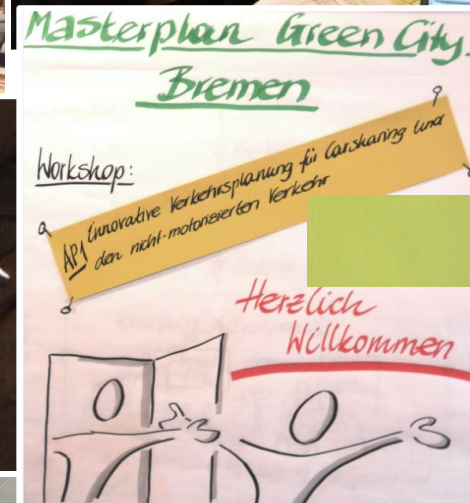 Masterplan Green City
Bremen
Workshop:
AP1 Innovative Verkehrsplanung für Carsharing und
den nicht-motorisierten Verkehr
Herzlich
Willkommen